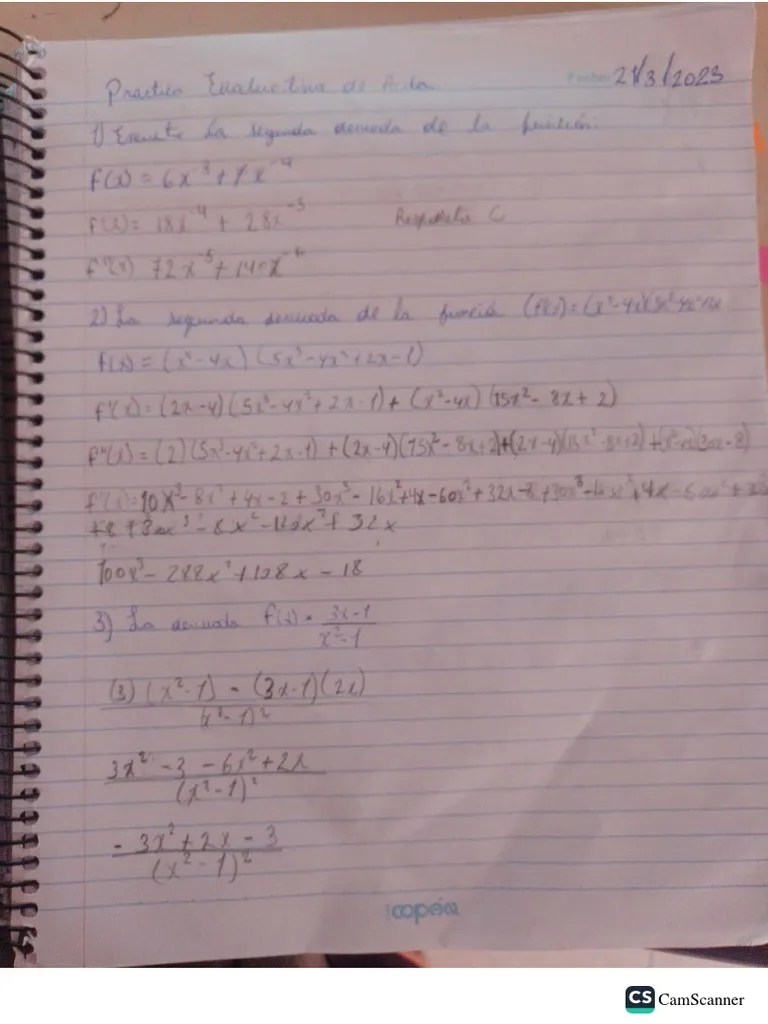 Practica Evaluativa de Aula
Fecha: 21/3/2023
1) Encuentre La segunda derivada de la función.
f(x) = 6x⁻³ + 7x⁻⁴
f'(x) = 18x⁻⁴ + 28x⁻⁵ Respuesta C
f''(x) 72x⁻⁵ + 140x⁻⁶
2) La segunda derivada de la función
f(x) = (x² - 4x) (5x³ - 4x² + 2x - 1)
f'(x) = (2x - 4) (5x³ - 4x² + 2x - 1) + (x² - 4x) (15x² - 8x + 2)
f''(x) = (2) (5x³ - 4x² + 2x - 1) + (2x - 4) (15x² - 8x + 2) + (2x - 4) (15x² - 8x + 2) + (x² - 4x) (30x - 8)
f''(x) = 10x³ - 8x² + 4x - 2 + 30x³ - 16x² + 4x - 60x² + 32x - 8 + 30x³ - 16x² + 4x - 60x²
100x³ - 288x² + 108x - 18
3) La derivada f(x) = (3x - 1)/(x² - 1)
(3) (x² - 1) - (3x - 1) (2x)
(x² - 1)²
3x² - 3 - 6x² + 2x
(x² - 1)²
- 3x² + 2x - 3
(x² - 1)²
copeica
CS CamScanner